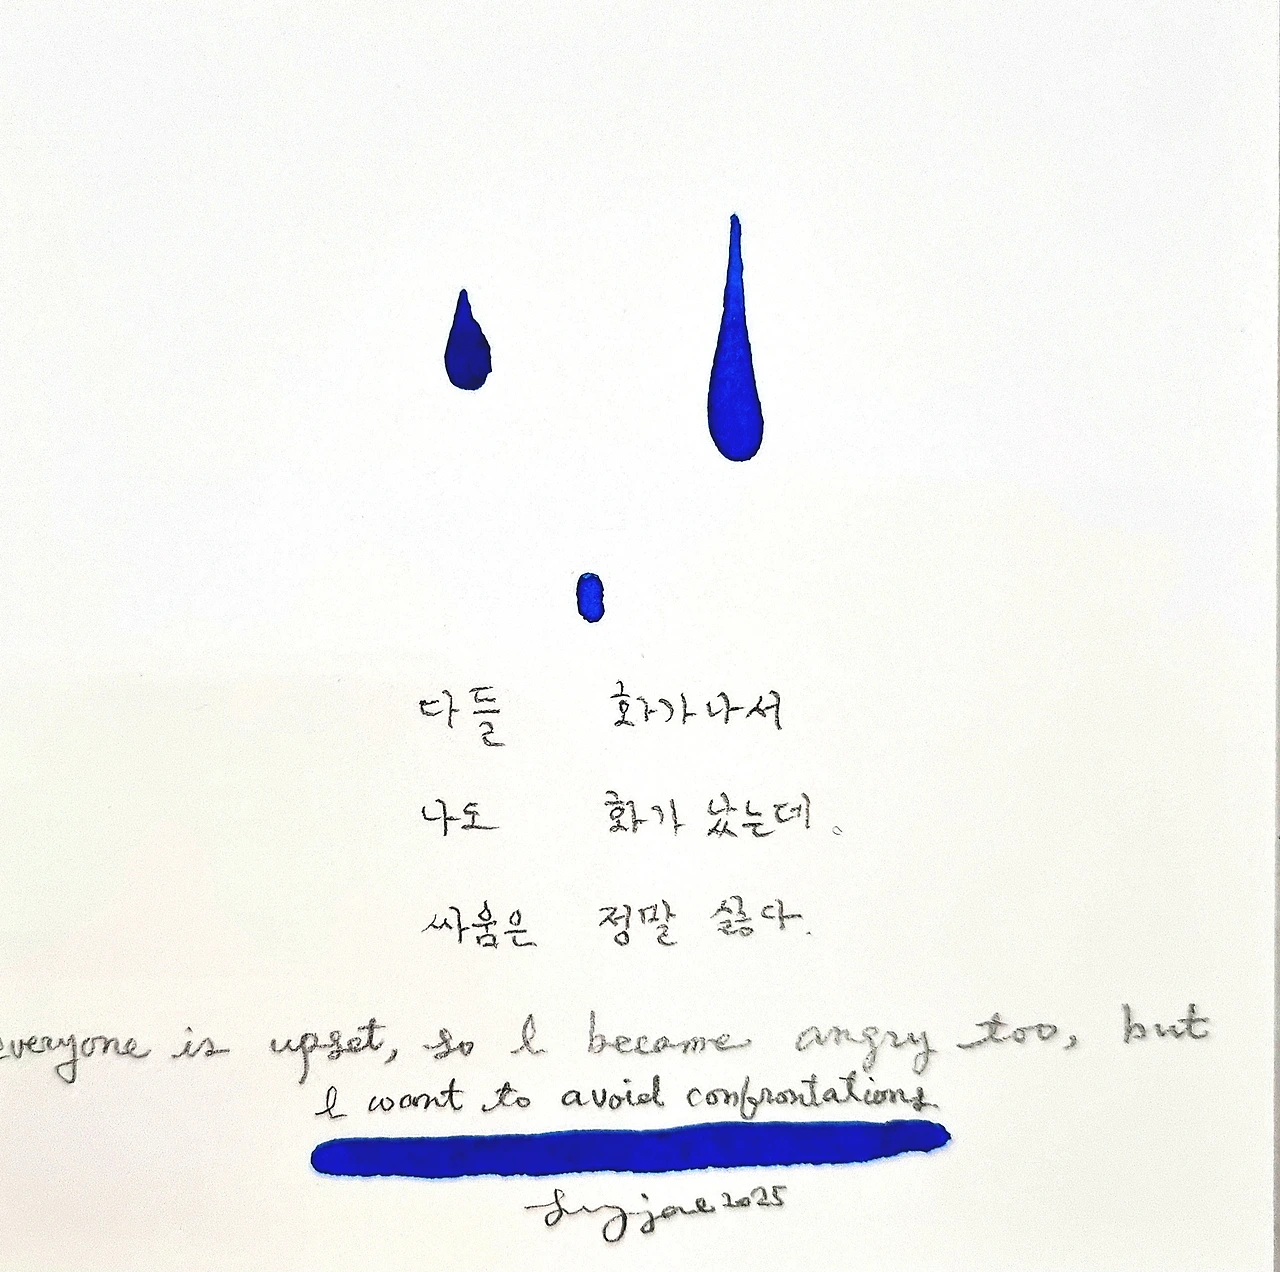 다들 화가나서
나도 화가 났는데.
싸움은 정말 싫다.
everyone is upset, so I became angry too, but
I want to avoid confrontations
2025